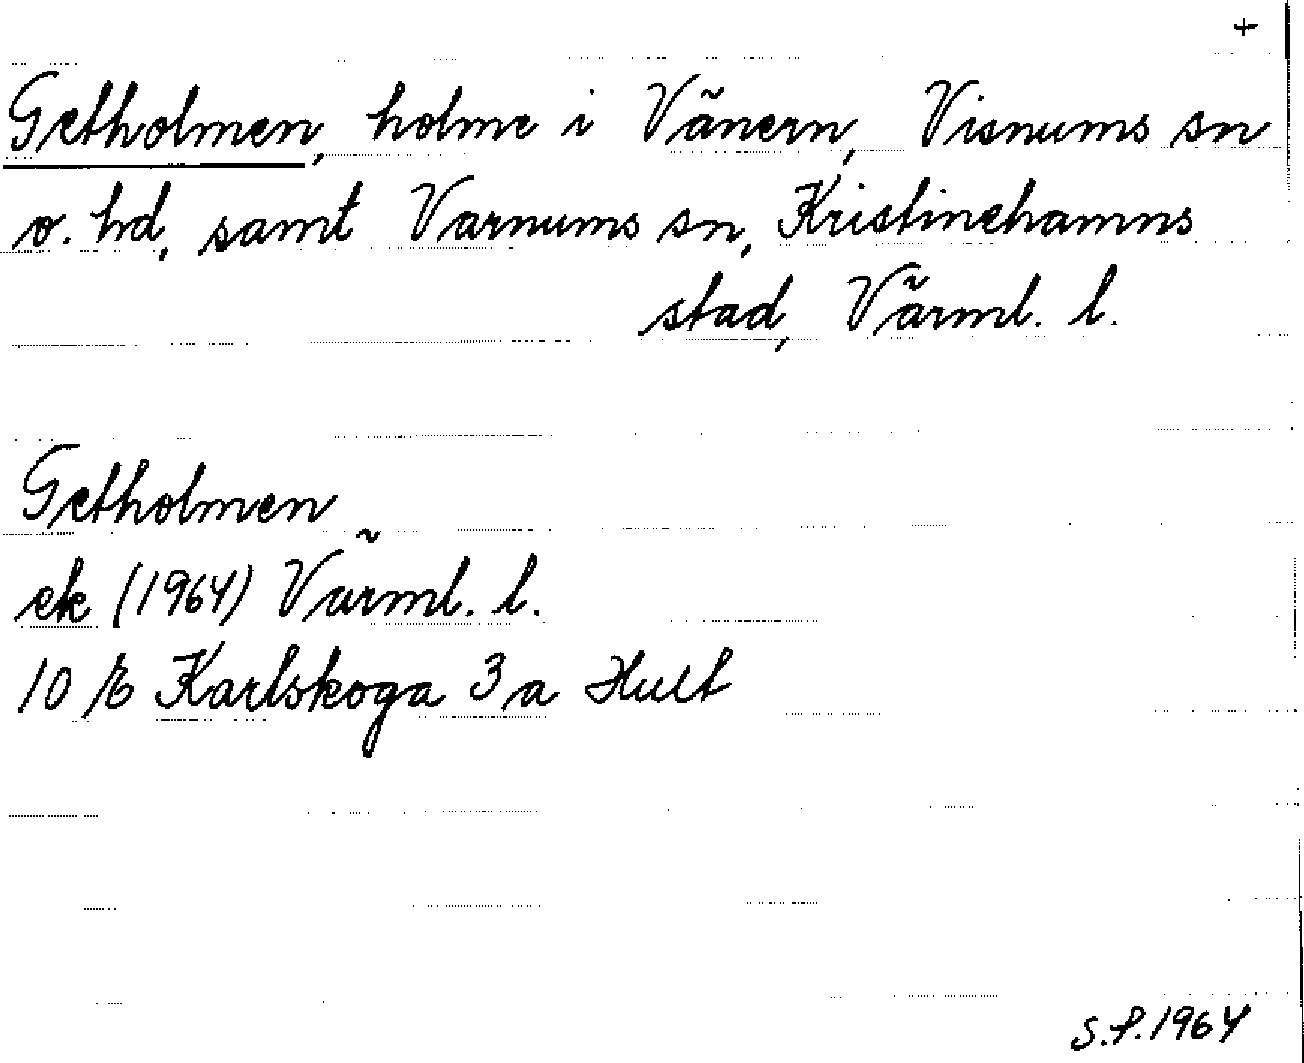 +
Getholmen, holme i Vänern, Visnums sn
o. hd, samt Varnums sn, Kristinehamns
stad, Värml. l.
Getholmen
ek (1964) Värml. l.
10 E Karlskoga 3 a Hult
S.P. 1964